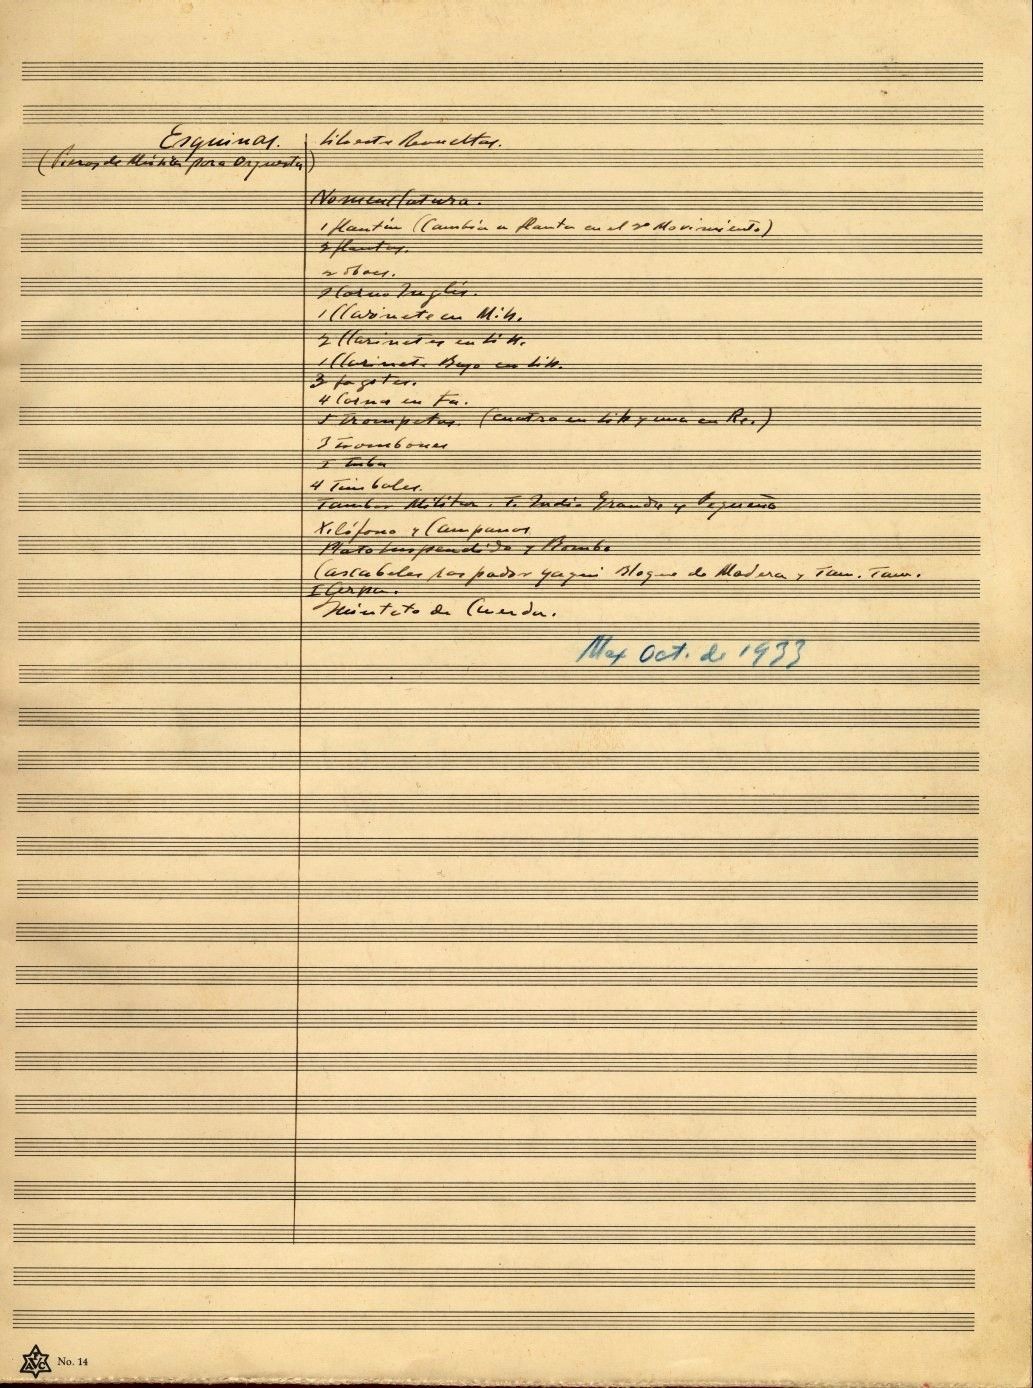 Esquinas. Silvestre Revueltas.
(Piezas de Música para Orquesta)
Nomenclatura.
1 flautín (Cambia a flauta en el 2º Movimiento)
2 flautas.
2 óboes.
1 Corno Inglés.
1 Clarinete en Mib.
2 Clarinetes en Sib.
1 Clarinete Bajo en Sib.
3 fagotes.
4 Cornos en Fa.
5 trompetas. (cuatro en Sib y una en Re.)
3 trombones
1 tuba
4 Timbales.
Tambor Militar. T. Indio Grande y Pequeño
Xilófono y Campanas
Plato suspendido y Bombo
Cascabeles raspador yaqui Bloque de Madera y Tam. Tam.
1 Arpa.
Quinteto de Cuerda.
Mex Oct. de 1933
No. 14